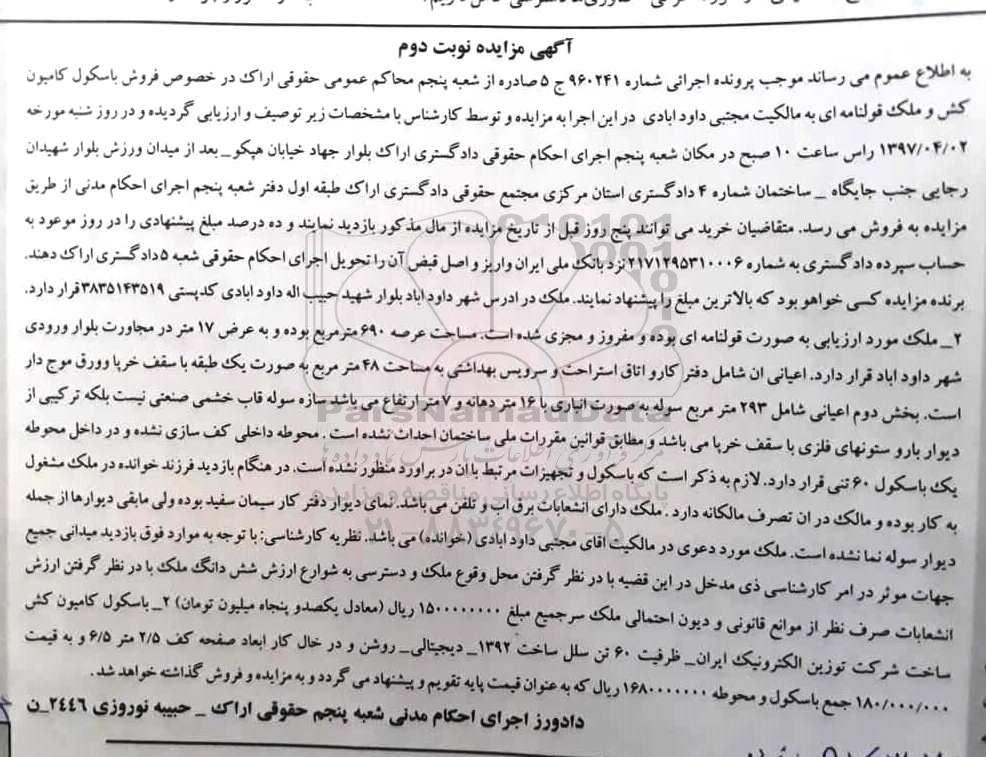 آگهی مزایده نوبت دوم
به اطلاع عموم می رساند موجب پرونده اجرائی شماره ۹۶۰۲۴۱ ج ۵ صادره از شعبه پنجم محاکم عمومی حقوقی اراک در خصوص فروش باسکول کامیون
کش و ملک قولنامه ای به مالکیت مجتبی داود ابادی در این اجرا به مزایده و توسط کارشناس با مشخصات زیر توصیف و ارزیابی گردیده و در روز شنبه مورخه
۱۳۹۷/۰۴/۰۲ راس ساعت ۱۰ صبح در مکان شعبه پنجم اجرای احکام حقوقی دادگستری اراک بلوار جهاد خیابان هپکو_ بعد از میدان ورزش بلوار شهیدان
رجایی جنب جایگاه _ ساختمان شماره ۴ دادگستری استان مرکزی مجتمع حقوقی دادگستری اراک طبقه اول دفتر شعبه پنجم اجرای احکام مدنی از طریق
مزایده به فروش می رسد. متقاضیان خرید می توانند پنج روز قبل از تاریخ مزایده از مال مذکور بازدید نمایند و ده درصد مبلغ پیشنهادی را در روز موعود به
حساب سپرده دادگستری به شماره ۲۱۷۱۲۹۵۳۱۰۰۰۶ نزد بانک ملی ایران واریز و اصل قبض آن را تحویل اجرای احکام حقوقی شعبه ۵ دادگستری اراک دهند.
برنده مزایده کسی خواهو بود که بالاترین مبلغ را پیشنهاد نمایند. ملک در ادرس شهر داود اباد بلوار شهید حبیب اله داود ابادی کدپستی ۳۸۳۵۱۴۳۵۱۹ قرار دارد.
۲_ ملک مورد ارزیابی به صورت قولنامه ای بوده و مفروز و مجزی شده است. مساحت عرصه ۶۹۰ مترمربع بوده و به عرض ۱۷ متر در مجاورت بلوار ورودی
شهر داود اباد قرار دارد. اعیانی ان شامل دفتر کارو اتاق استراحت و سرویس بهداشتی به مساحت ۴۸ متر مربع به صورت یک طبقه با سقف خرپا وورق موج دار
است. بخش دوم اعیانی شامل ۲۹۳ متر مربع سوله به صورت انباری با ۱۶ متر دهانه و ۷ متر ارتفاع می باشد سازه سوله قاب خشمی صنعتی نیست بلکه ترکیبی از
دیوار بارو ستونهای فلزی با سقف خرپا می باشد و مطابق قوانین مقررات ملی ساختمان احداث نشده است . محوطه داخلی کف سازی نشده و در داخل محوطه
یک باسکول ۶۰ تنی قرار دارد. لازم به ذکر است که باسکول و تجهیزات مرتبط با ان در براورد منظور نشده است. در هنگام بازدید فرزند خوانده در ملک مشغول
به کار بوده و مالک در ان تصرف مالکانه دارد . ملک دارای انشعابات برق اب و تلفن می باشد. نمای دیوار دفتر کار سیمان سفید بوده ولی مابقی دیوارها از جمله
دیوار سوله نما نشده است. ملک مورد دعوی در مالکیت اقای مجتبی داود ابادی (خوانده) می باشد. نظریه کارشناسی: با توجه به موارد فوق بازدید میدانی جمیع
جهات موثر در امر کارشناسی ذی مدخل در این قضیه با در نظر گرفتن محل وقوع ملک و دسترسی به شوارع ارزش شش دانگ ملک با در نظر گرفتن ارزش
انشعابات صرف نظر از موانع قانونی و دیون احتمالی ملک سرجمیع مبلغ ۱۵۰۰۰۰۰۰۰۰ ریال (معادل یکصدو پنجاه میلیون تومان) ۲_ باسکول کامیون کش
ساخت شرکت توزین الکترونیک ایران_ ظرفیت ۶۰ تن سلل ساخت ۱۳۹۲_ دیجیتالی_ روشن و در خال کار ابعاد صفحه کف ۲/۵ متر ۶/۵ و به قیمت
۱۸۰/۰۰۰/۰۰۰ جمع باسکول و محوطه ۱۶۸۰۰۰۰۰۰۰ ریال که به عنوان قیمت پایه تقویم و پیشنهاد می گردد و به مزایده و فروش گذاشته خواهد شد .
دادورز اجرای احکام مدنی شعبه پنجم حقوقی اراک _ حبیبه نوروزی ۲٤٤٦_ن
ParsNamadData
پایگاه اطلاع رسانی مناقصه و مزایده
۰۲۱-۸۸۳۴۹۶۷۰-۵